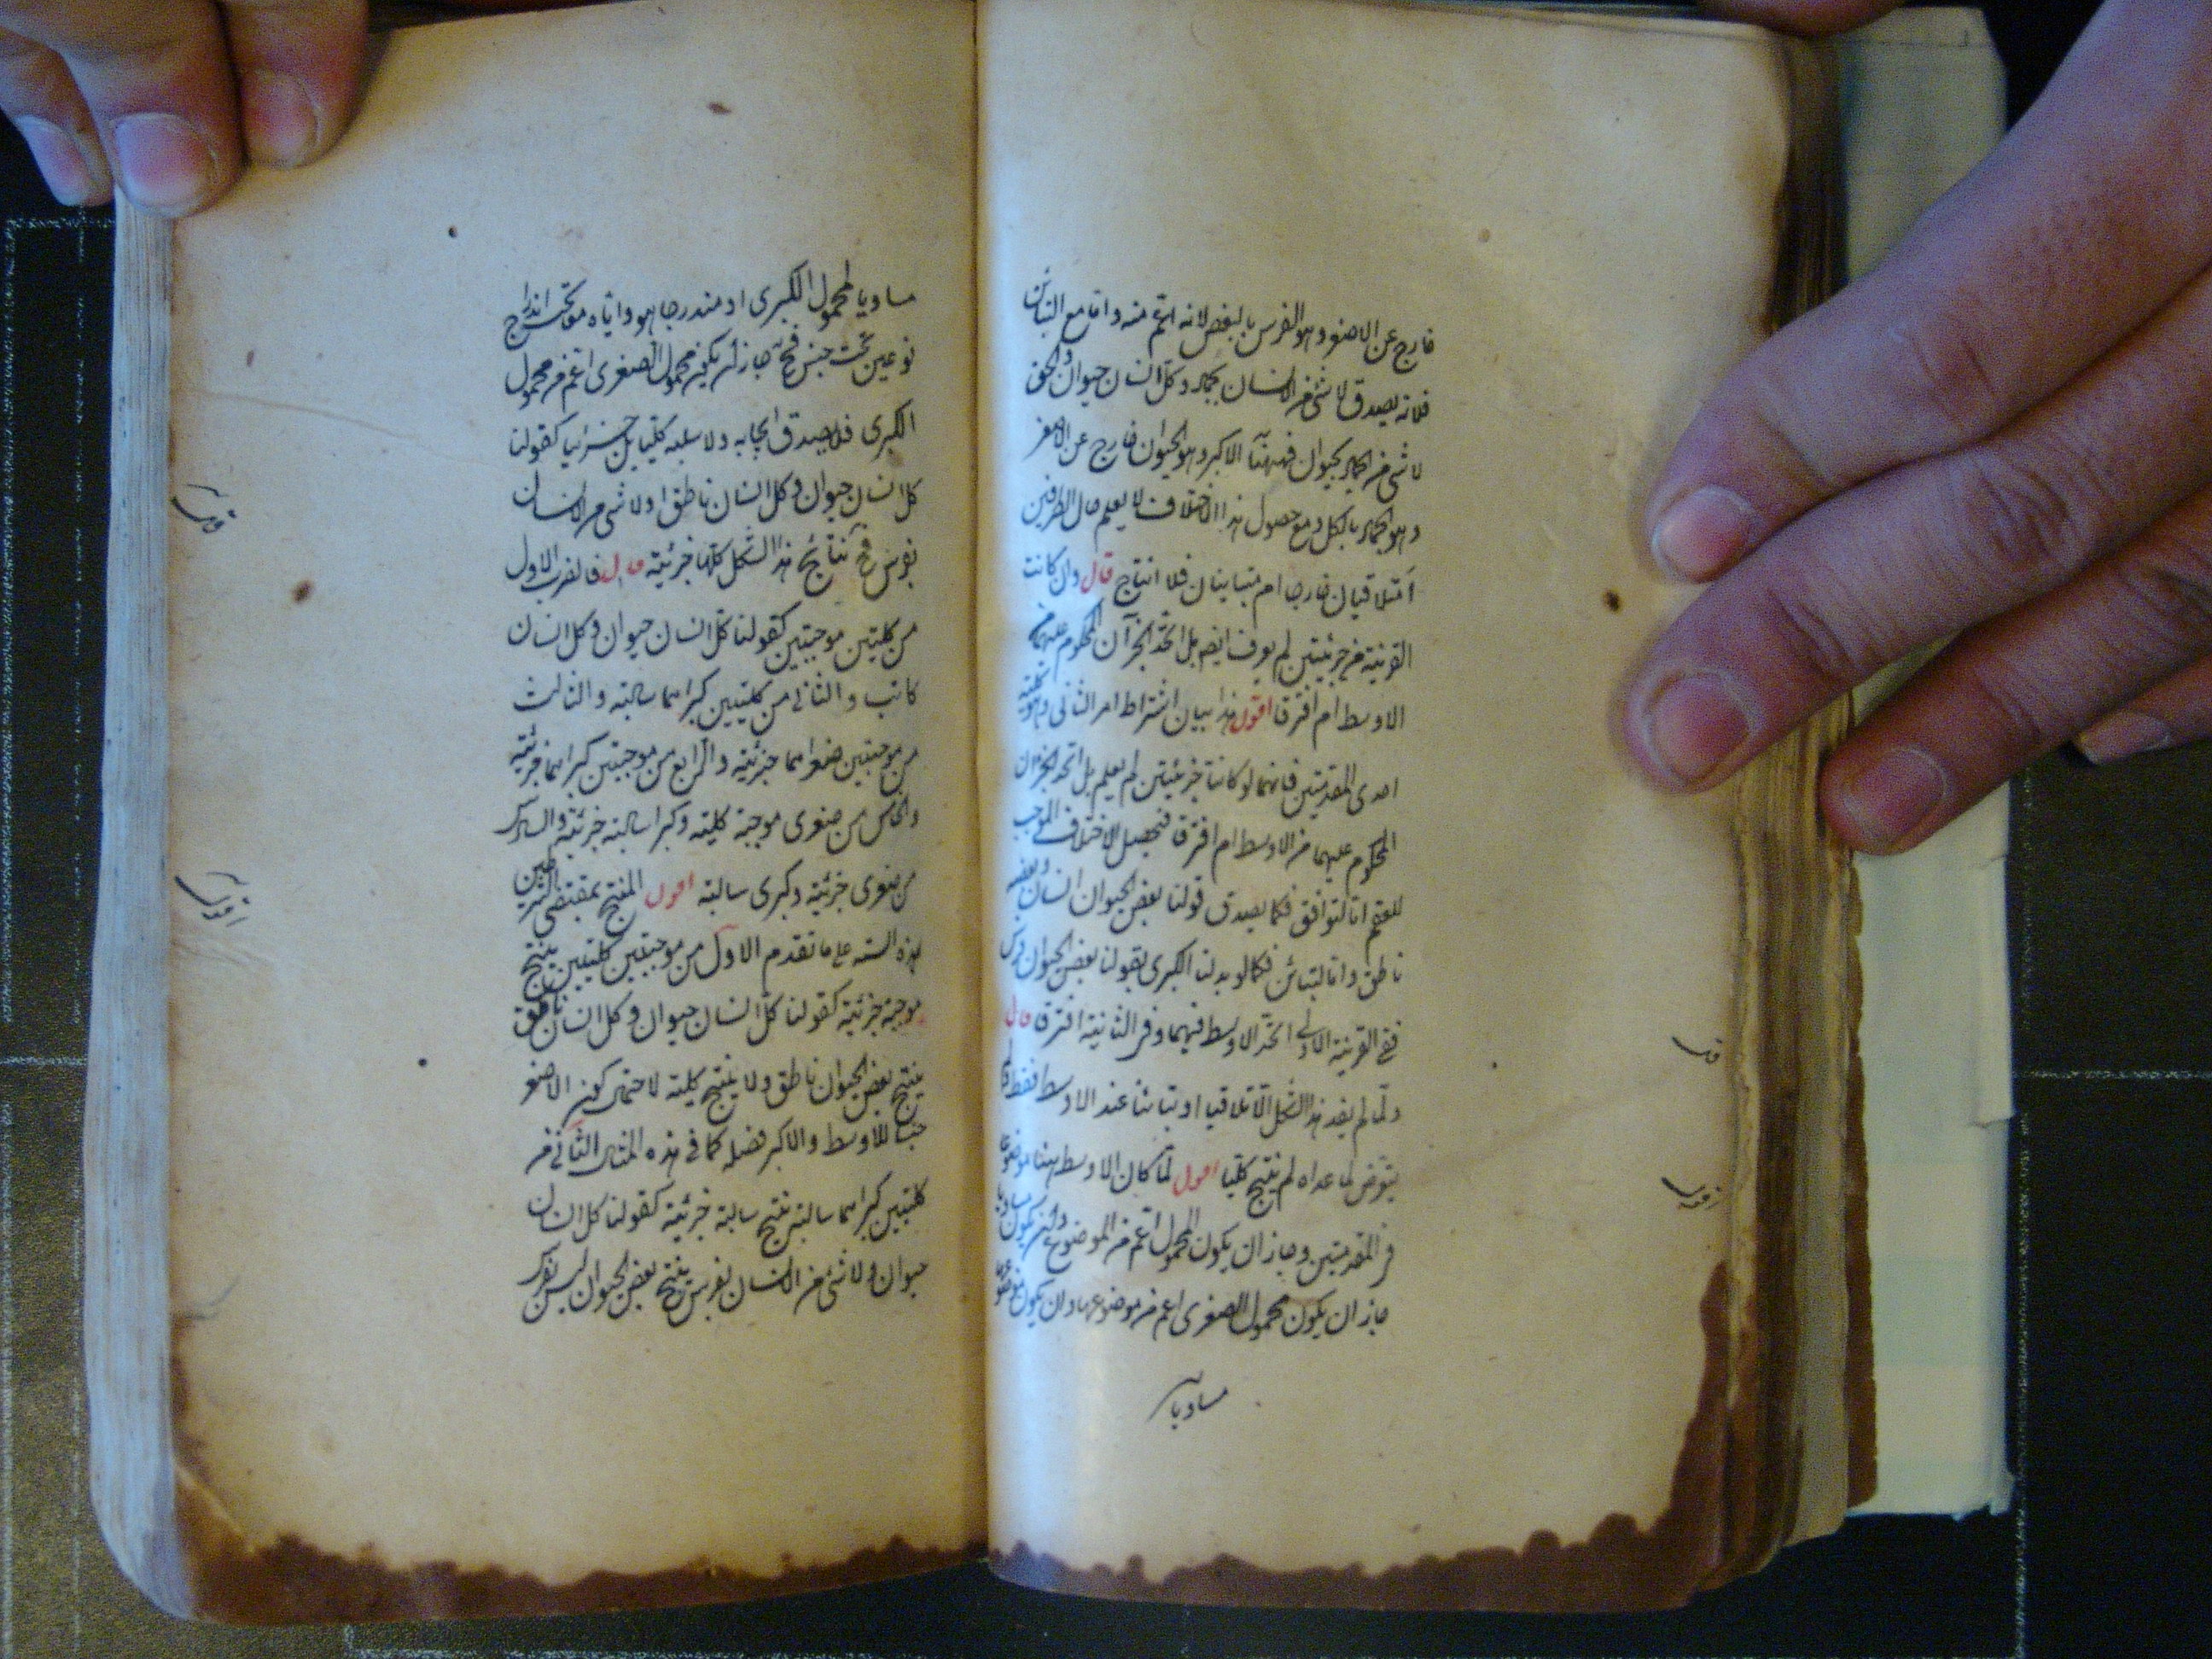 خارج عن الاصغر وهو الفرس بالبعض لانه اعم منه واما مع التباين
فلانه يصدق لا شئ من الانسان بحجر وكل انسان حيوان والحق
لا شئ من الحجر بحيوان فههنا الاكبر وهو الحيوان خارج عن الاصغر
وهو الحجر بالكل ومع حصول هذا الاختلاف لا يعلم حال الطرفين
امتلاقيان خارجا ام متباينان فلا انتاج قال وان كانت
القرينة من جزئيتين لم يعرف ايضا هل اتحد الجزآن المحكوم عليهما من
الاوسط ام افترقا اقول هذا بيان اشتراط امر الثاني وهو كلية
احدى المقدمتين فانهما لو كانتا جزئيتين لم يعلم هل اتحد الجزآن
المحكوم عليهما من الاوسط ام افترقا فيحصل الاختلاف الموجب
للعقم اما التوافق فكما يصدق قولنا بعض الحيوان انسان وبعضه
ناطق واما التباين فكما لو بدلنا الكبرى بقولنا بعض الحيوان فرس
ففي القرينة الاولى اتحد الاوسط فيهما وفي الثانية افترقا قال
ولما لم يفد هذا الشكل الا تلاقيا او تباينا عند الاوسط فقط
يتعرض لما عداه لم ينتج كليا اقول لما كان الاوسط ههنا موضوعا
في المقدمتين وجاز ان يكون المحمول اعم من الموضوع وان يكون مساويا
جاز ان يكون محمول الصغرى اعم من موضوعها وان يكون موضوعها
مساويا
قال
اقول
مساويا لمحمول الكبرى او مندرجا هو واياه تحت اندراج
نوعين تحت جنس فح جاز ان يكون محمول الصغرى اعم من محمول
الكبرى فلا يصدق ايجابه ولا سلبه كليا بل جزئيا كقولنا
كل انسان حيوان وكل انسان ناطق او لا شئ من الانسان
بفرس فح نتايج هذا الشكل كلها جزئية قال فالضرب الاول
من كليتين موجبتين كقولنا كل انسان حيوان وكل انسان
كاتب والثاني من كليتين كبراهما سالبة والثالث
من موجبتين صغراهما جزئية والرابع من موجبتين كبراهما جزئية
والخامس من صغرى موجبة كلية وكبرا سالبة جزئية والسادس
من صغرى جزئية وكبرى سالبة اقول المنتج بمقتضى الشرطين
هذه الستة على ما تقدم الاول من موجبتين كليتين ينتج
موجبة جزئية كقولنا كل انسان حيوان وكل انسان ناطق
ينتج بعض الحيوان ناطق ولا ينتج كلية لاحتمال كون الاصغر
جنسا للاوسط والاكبر فصله كما في هذه المثال الثاني من
كليتين كبراهما سالبة ينتج سالبة جزئية كقولنا كل انسان
حيوان ولا شئ من الانسان بفرس ينتج بعض الحيوان ليس بفرس
قال
اقول